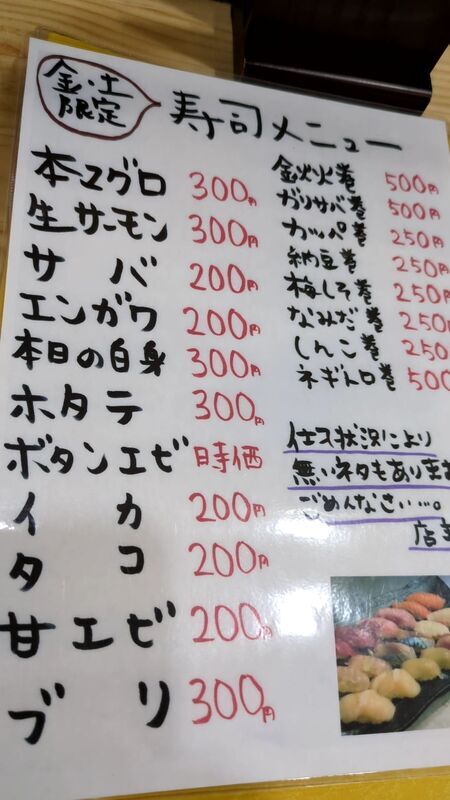 金・土
限定
寿司メニュー
本マグロ 300円
生サーモン 300円
サバ 200円
エンガワ 200円
本日の白身 300円
ホタテ 300円
ボタンエビ 時価
イカ 200円
タコ 200円
甘エビ 200円
ブリ 300円
鉄火巻 500円
ガリサバ巻 500円
カッパ巻 250円
納豆巻 250円
梅しそ巻 250円
なみだ巻 250円
しんこ巻 250
ネギトロ巻 500
仕入状況により
無いネタもありま
ごめんなさい…。
店